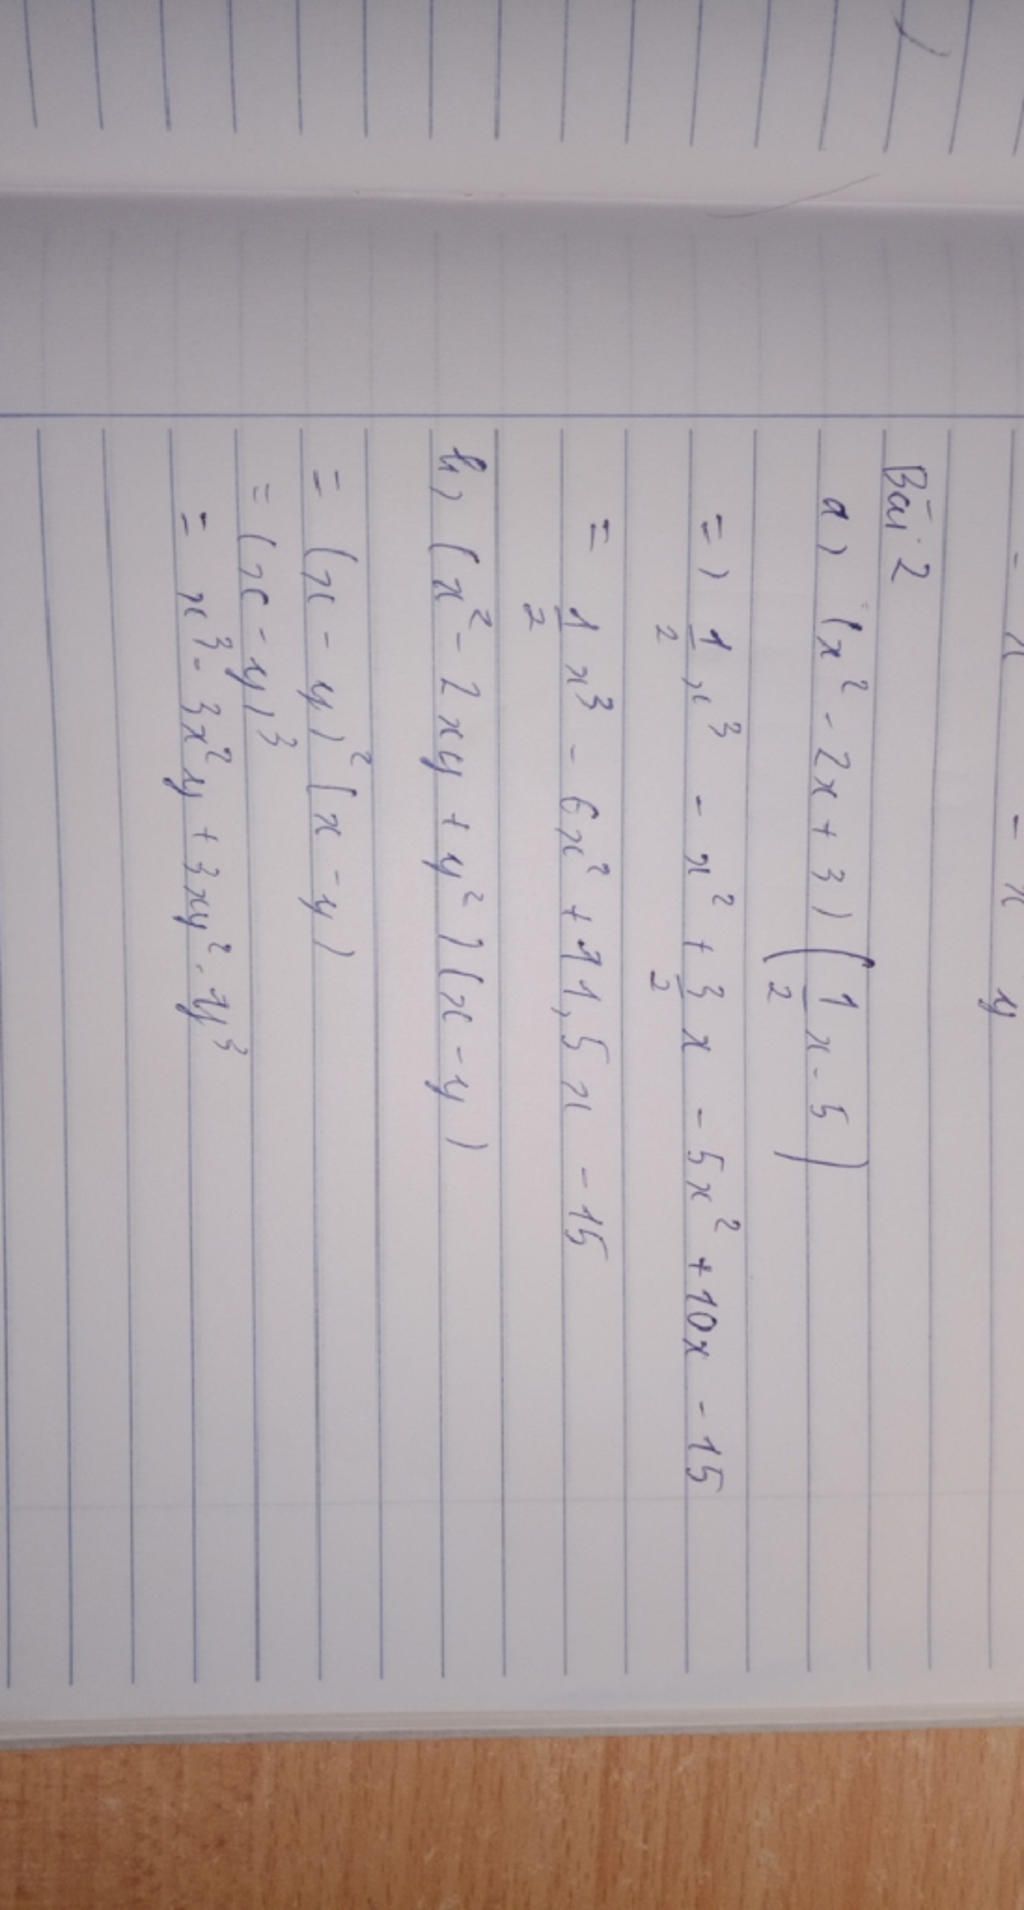 Bài 2
a, (x² - 2x + 3) (1/2 x - 5)
=) 1/2 x³ - x² + 3/2 x - 5x² + 10x - 15
= 1/2 x³ - 6x² + 11,5x - 15
b, (x² - 2xy + y²)(x - y)
= (x - y)² (x - y)
= (x - y)³
= x³ - 3x²y + 3xy² - y³